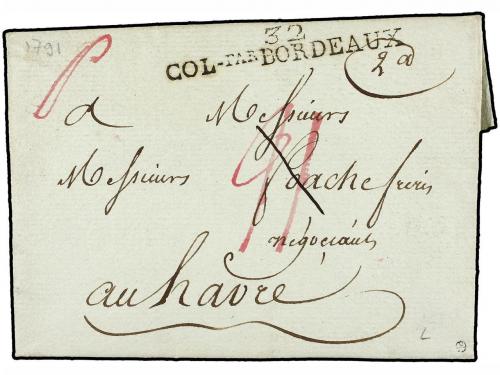 1791
32
COL-PAR BORDEAUX
2d
a Messieurs
Messieurs Foache freres
negociants
au havre
L